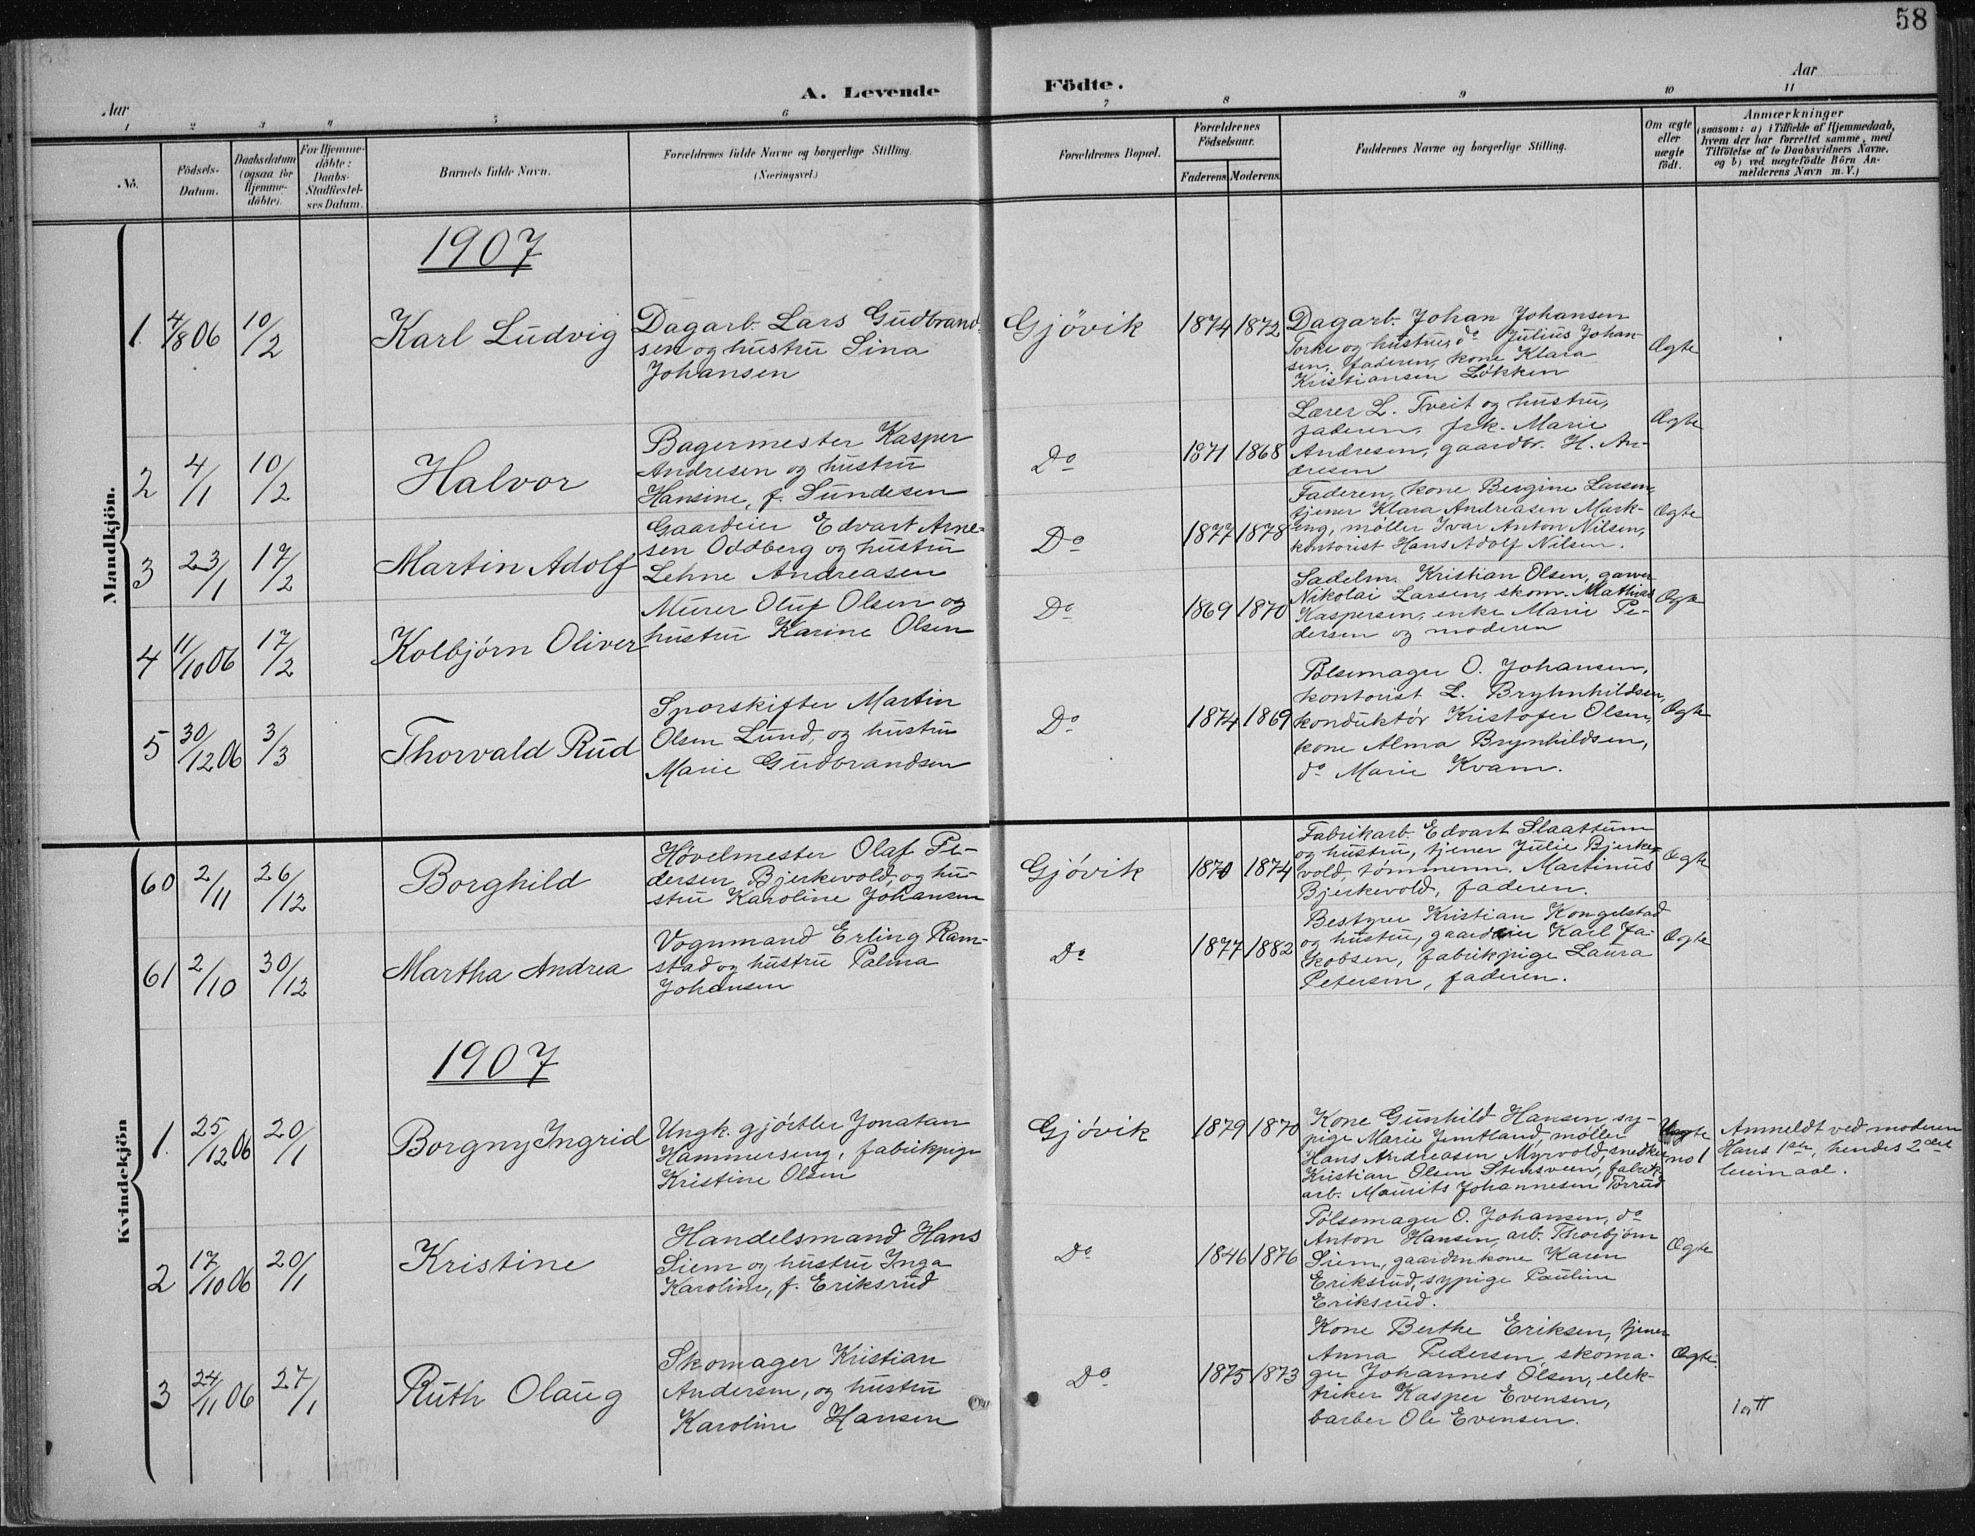 58
A. Levende Födte.
Aar
Aar
1 2 3 4 5 6 7 8 9 10 11
No.
Födsels-Datum.
Daabsdatum (ogsaa for Hjemme-döbte).
For Hjemme-döbte: Daabs-Stadfæstel-ses Datum.
Barnets fulde Navn.
Forældrenes fulde Navne og borgerlige Stilling.
(Næringsvei.)
Forældrenes Bopæl.
Forældrenes Födselsaar.
Faderens. Moderens.
Faddernes Navne og borgerlige Stilling.
Om ægte eller uægte födt.
Anmærkninger
(saasom: a) i Tilfælde af Hjemmedaab, hvem der har forrettet samme, med Tilföielse af to Daabsvidners Navne, og b) ved uægtefödte Börn Anmelderens Navn m. V.)
Mandkjön.
1907
1. 4/8 06 10/2 Karl Ludvig
Dagarb. Lars Gudbrand-
sen og hustru Sina
Johansen
Gjövik 1874 1872
Dagarb. Johan Johansen
Torke og hustru, do Julius Johan-
sen, faderen, kone Klara
Kristiansen Løkken
Ægte
2 4/1 10/2 Halvor
Bagermester Kasper
Andresen og hustru
Hansine, f. Sundesen
Do 1871 1868
Lærer L. Tveit og hustru,
faderen, frk. Marie
Andresen, gaardbr. H. An-
dresen
Ægte
3 23/1 17/2 Martin Adolf
Gaardeier Edvart Arne-
sen Oddberg og hustru
Lehne Andreasen
Do 1877 1878
Faderen, kone Bergine Larsen,
tjener Klara Andreasen Mark-
eng, møller Ivar Anton Nilsen,
kontorist Hans Adolf Nilsen.
Ægte
4 11/10 06 17/2 Kolbjørn Oliver
Murer Oluf Olsen og
hustru Karine Olsen
Do 1869 1870
Sadelm. Kristian Olsen, garver
Nikolai Larsen, skom. Mathias
Kaspersen, enke Marie Pe-
dersen og moderen
Ægte
5 30/12 06 3/3 Thorvald Rud
Sporskifter Martin
Olsen Lund, og hustru
Marie Gudbrandsen
Do 1874 1869
Pølsemager O. Johansen,
kontorist L. Bryhnhildsen,
konduktör Kristofer Olsen,
kone Alma Brynhildsen,
do Marie Kvam.
Ægte
Kvindekjön
60 2/11 26/12 Borghild
Høvelmester Olaf Pe-
dersen Bjerkevold, og hu-
stru Karoline Johansen
Gjövik 1870 1874
Fabrikarb. Edvart Slaattum
og hustru, tjener Julie Bjerke-
vold, tømmerm. Martinus
Bjerkevold, faderen.
Ægte
61 2/10 30/12 Martha Andrea
Vognmand Erling Ram-
stad og hustru Palma
Johansen
Do 1877 1882
Bestyrer Kristian Kongelstad
og hustru, gaardeier Karl Ja-
kobsen, fabrikpige Laura
Petersen, faderen.
Ægte
1907
1. 25/12 06 20/1 Borgny Ingrid
Ungk. gjørtler Jonatan
Hammerseng, fabrikpige
Kristine Olsen
Gjövik 1879 1870
Kone Gunhild Hansen, sy-
pige Marie Jemtland, møller
Hans Andreasen Myrvold, snedker
Kristian Olsen Stensveen, fabrik-
arb. Maurits Johannesen Torrud
Uægte
no 1
Anmeldt ved moderen
Hans 1ste, hendes 2det
leiermaal.
2 17/10 06 20/1 Kristine
Handelsmand Hans
Siem og hustru Inga
Karoline, f. Eriksrud
Do 1846 1876
Pølsemager O. Johansen, do
Anton Hansen, arb. Thorbjørn
Siem, gaardm.kone Karen
Eriksrud, sypige Pauline
Eriksrud.
Ægte
3 24/11 06 27/1 Ruth Olaug
Skomager Kristian
Andersen, og hustru
Karoline Hansen
Do 1875 1873
Kone Berthe Eriksen, tjener
Anna Pedersen, skoma-
ger Johannes Olsen, elek-
triker Kasper Evensen,
barber Ole Evensen.
Ægte